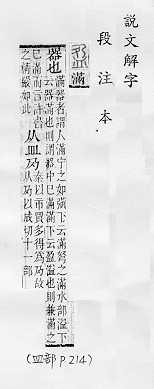 說文解字
段注本
盈 滿
器也 滿器者謂人滿宁之如彉下云滿弩之滿水部溢下
云器滿也則謂器中巳滿滿下云盈溢也則兼滿之
巳滿而言許書
之精嚴如此
从皿夃 秦以市買多得爲夃故
从夃以成切十一部
(皿部 P.214)